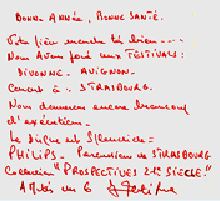 BONNE ANNÉE, BONNE SANTÉ.
Votre pièce marche très bien...
Nous avons joué aux FESTIVALS:
DIVONNE - AVIGNON -
Concert à STRASBOURG.
Nous donnerons encore beaucoup
d'exécutions -
Le disque est splendide -
PHILIPS - Percussions de STRASBOURG
Collection "PROSPECTIVES 21e SIECLE."
Amitiés du 6